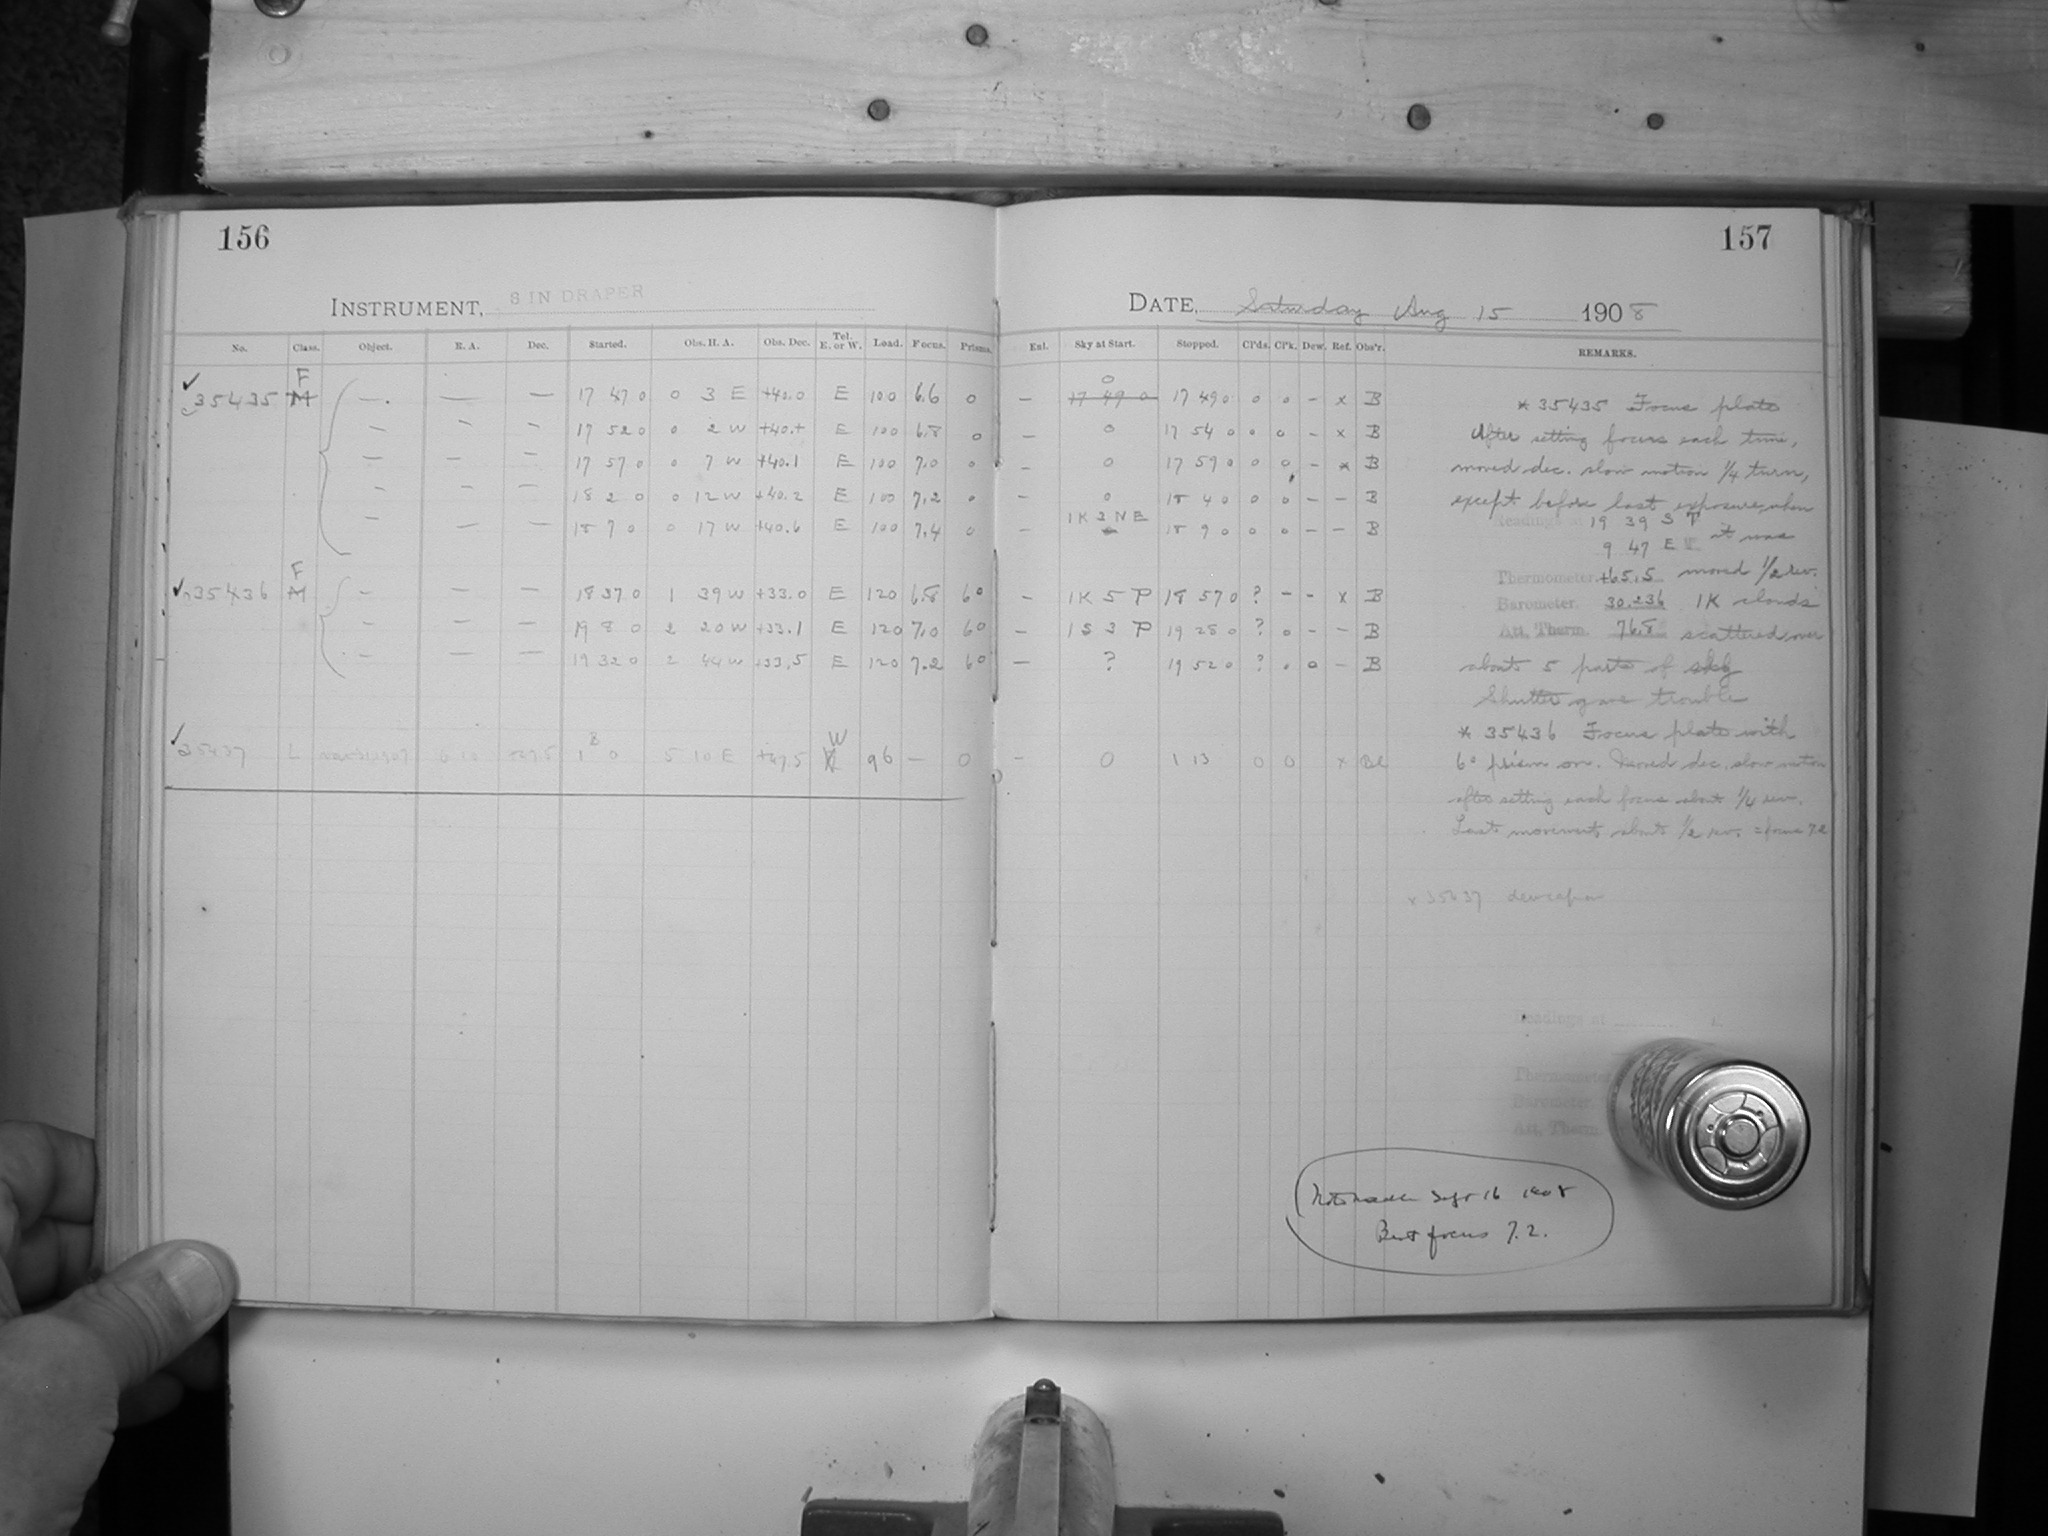 156
157
INSTRUMENT, 8 IN DRAPER
DATE, Saturday Aug 15 1908
No. Class. Object. R. A. Dec. Started. Obs. H. A. Obs. Dec. Tel. E. or W. Load. Focus. Prisms. Enl. Sky at Start. Stopped. Cl'ds. Cl'k. Dew. Ref. Obs'r. REMARKS.
35435 F M —. — — 17 47 0 0 3 E +40.0 E 100 6.6 0 — 0 17 49 0 17 49 0 0 0 – x B
— – – 17 52 0 0 2 W E 100 6.8 0 — 0 17 54 0 0 0 – x B
— – – 17 57 0 0 7 W +40.1 E 100 7.0 0 – 0 17 59 0 0 0 – x B
— – – 18 2 0 0 12 W +40.2 E 100 7.2 0 – 0 18 4 0 0 0 – – B
— – — 18 7 0 0 17 W +40.6 E 100 7.4 0 – 1K 3 NE 18 9 0 0 0 – – B
35436 F M – – – 18 37 0 1 39 W +33.0 E 120 6.8 60 – 1K 5 P 18 57 0 ? – – x B
– – – 19 8 0 2 20 W +33.1 E 120 7.0 60 – 1S 3 P 19 28 0 ? 0 – – B
– — – 19 32 0 2 44 W +33.5 E 120 7.2 60 — ? 19 52 0 ? 0 0 – B
35437 L 6 10 +47.5 1 8 0 5 10 E +47.5 W 96 — 0 – 0 1 13 0 0 x Be
* 35435 Focus plate
After setting focus each time,
moved dec. slow motion 1/4 turn,
except before last exposure, when
Readings at 19 39 S T it was
9 47 E T
Thermometer. +65.5 moved 1/2 rev.
Barometer. 30.236 1K clouds
Att. Therm. 76.8 scattered over
about 5 parts of sky
Shutter gave trouble
* 35436 Focus plate with
60 prism on. Moved dec. slow motion
after setting each focus about 1/4 rev.
Last movement about 1/2 rev. = focus 7.2
x 35437 dewcap on
Readings at
Thermometer
Barometer
Att. Therm.
Note made Sept 16 1908
Best focus 7.2.